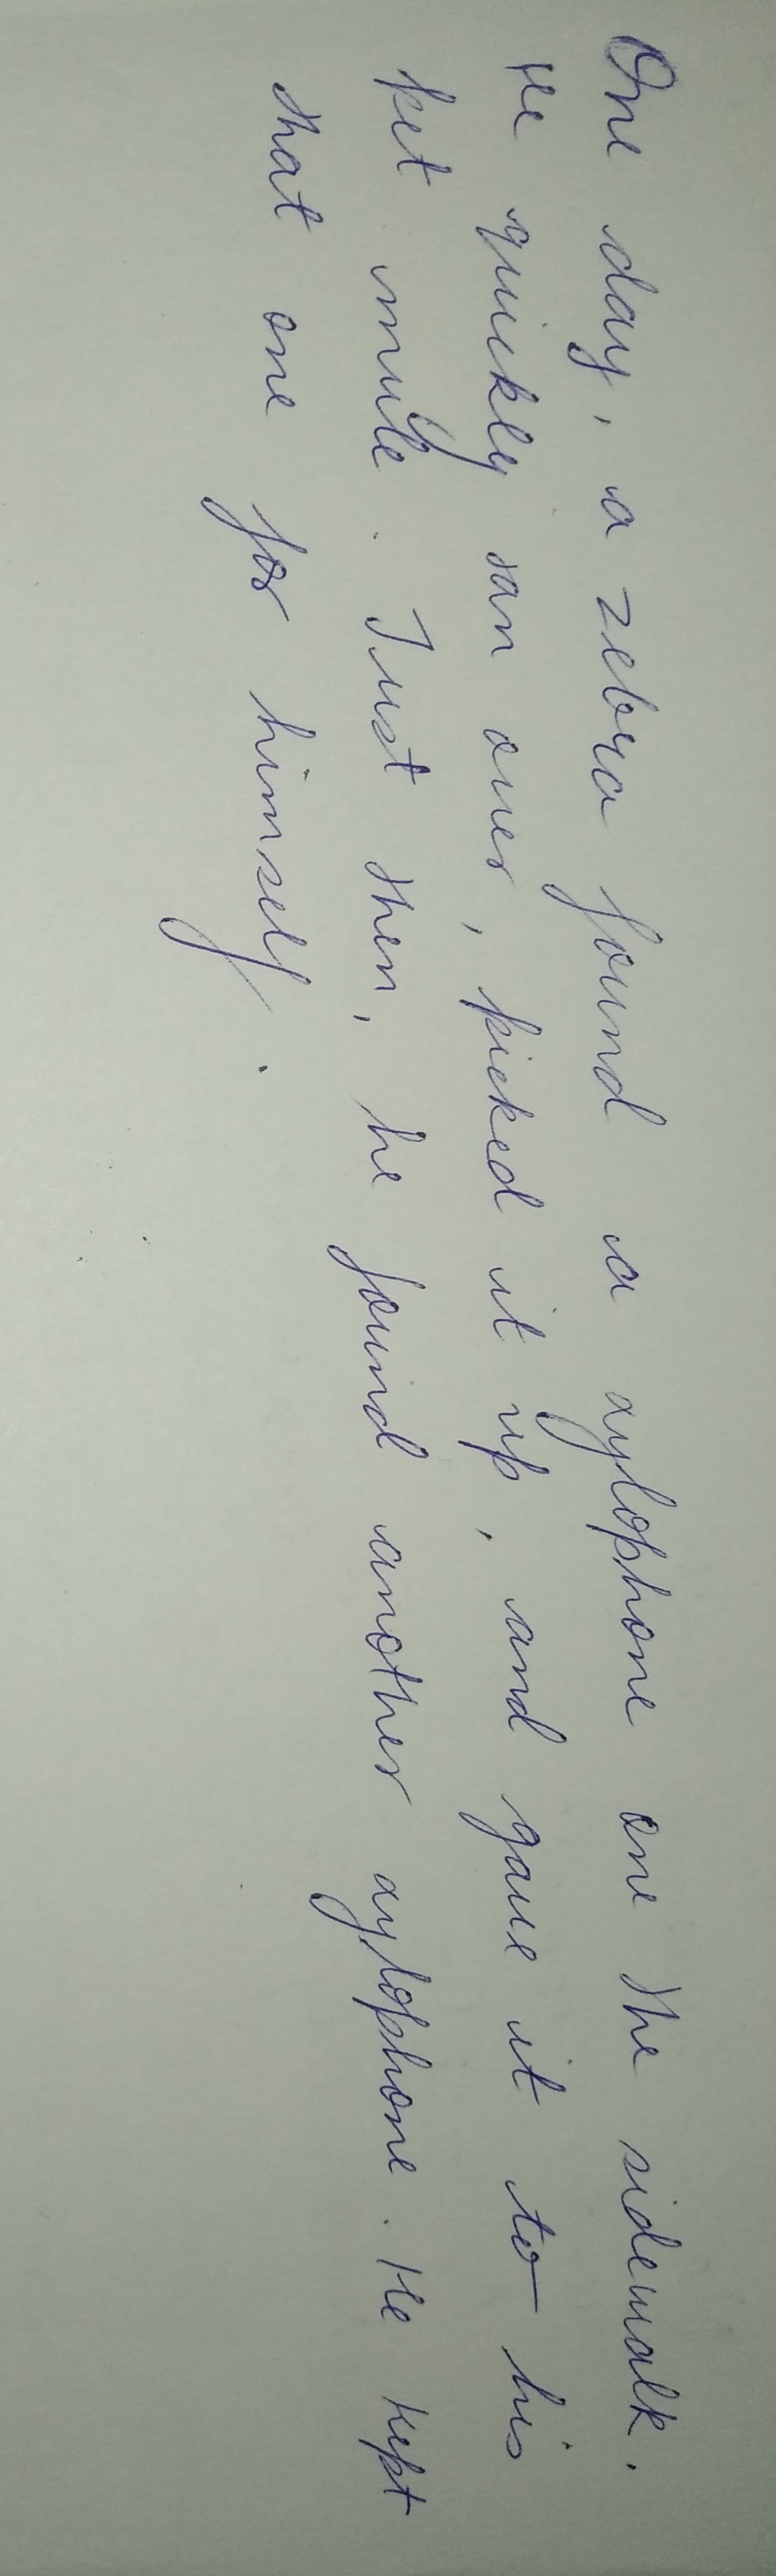 One day, a zebra found a xylophone one the sidewalk.
He quickly ran over, picked it up, and gave it to his
pet mule. Just then, he found another xylophone. He kept
that one for himself.